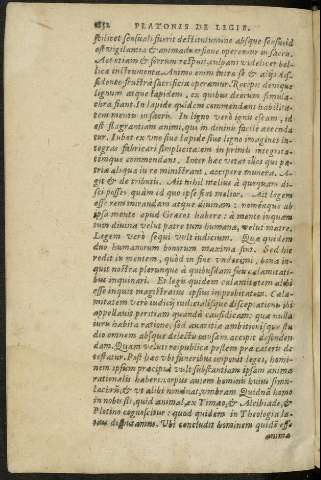 PLATONIS DE LEGIB.
esse vigilantia & animaduersione
Aes etiam & ferrum respuit, culpans videlicet bel-
lica instrumenta. Animo enim
sedente frustrà sacrificia operamur. Recipit denique
lignum atque lapidem, ex quibus deorum simula-
chra fiant. In lapide quidem commendant habilita-
tem mentis in sacris. In ligno verò ignis escam, id
est flagrantiam animi, qui in diuinis facile accenda
tur. Iubet ex vno siue lapide siue ligno imagines in-
tegras fabricari simplicitatem in primis integrita-
temque commendans. Inter hæc vetat illos qui pa-
tria aliqua in re ministrant, accipere munera. A-
git & de tributis. Ait nihil melius à quoquam di-
sci posse, quàm id quo ipse sit melior. Ait legem
esse rem mirandam atque diuinam: nomenque ab
ipsa mente apud Græcos habere: à mente inquam
tum diuina velut patre tum humana, velut matre.
Legem verò sequi vult iudicium. Quæ quidem
duo humanorum bonorum maxima sint. Sed hic
redit in mentem, quòd in fine bona in-
quit nostra plerunque à quibusdam seu calamitati-
bus inquinari. Et legis quidem calamitatem
esse inquit magistratus ipsius improbitatem. Cala-
mitatem verò iudicij
appellauit peritiam quandam causidicam: quæ nulla
iuris habita ratione, sed auaritiæ ambitionisque stu
dio omnem absque delectu causam accipit defenden-
dam. Quàm velut reipublicæ pestem præcæteris de-
testatur. Post hæc vbi funeribus imponit leges, homi-
nem ipsum præcipuè vult substantiam ipsam animæ
rationalis habere: corpus autem hominis huius simu-
lacrum, & vt alibi vmbram. Quidnam homo
in nobis sit, quid animal, ex Timæo, & Alcibiade, &
Plotino cognoscitur: quod quidem in Theologia la-
tius disputamus. Vbi concludit hominem quidem esse
anima